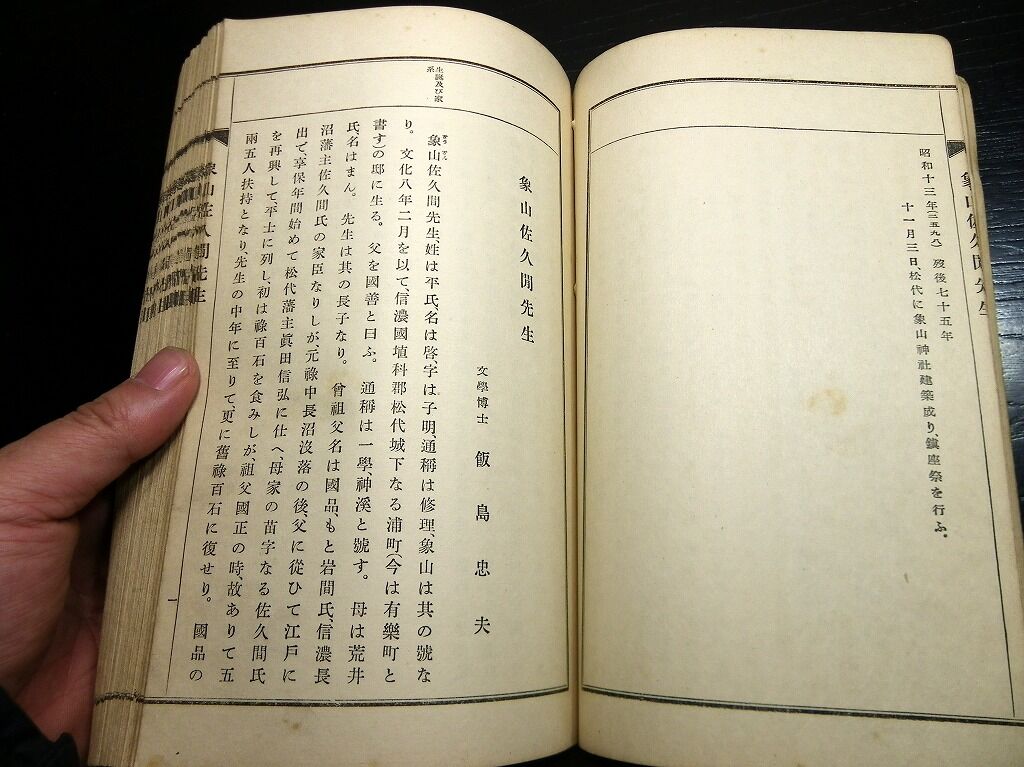 象山佐久間先生
昭和十三年(二五九八) 歿後七十五年
十一月三日、松代に象山神社建築成り、鎭座祭を行ふ。
生誕及び家系
象山佐久間先生
文學博士 飯島忠夫
象山佐久間先生、姓は平氏、名は啓、字は子明、通稱は修理、象山は其の號な
り。文化八年二月を以て、信濃國埴科郡松代城下なる浦町(今は有樂町と
書す)の邸に生る。父を國善と曰ふ。通稱は一學、神溪と號す。母は荒井
氏、名はまん。先生は其の長子なり。曾祖父名は國品、もと岩間氏、信濃長
沼藩主佐久間氏の家臣なりしが、元祿中長沼沒落の後、父に從ひて江戸に
出で、享保年間始めて松代藩主眞田信弘に仕へ、母家の苗字なる佐久間氏
を再興して、平士に列し、初は祿百石を食みしが、祖父國正の時、故ありて五
兩五人扶持となり先生の中年に至りて、更に舊祿百石に復せり。國品の
象山佐久間先生
一